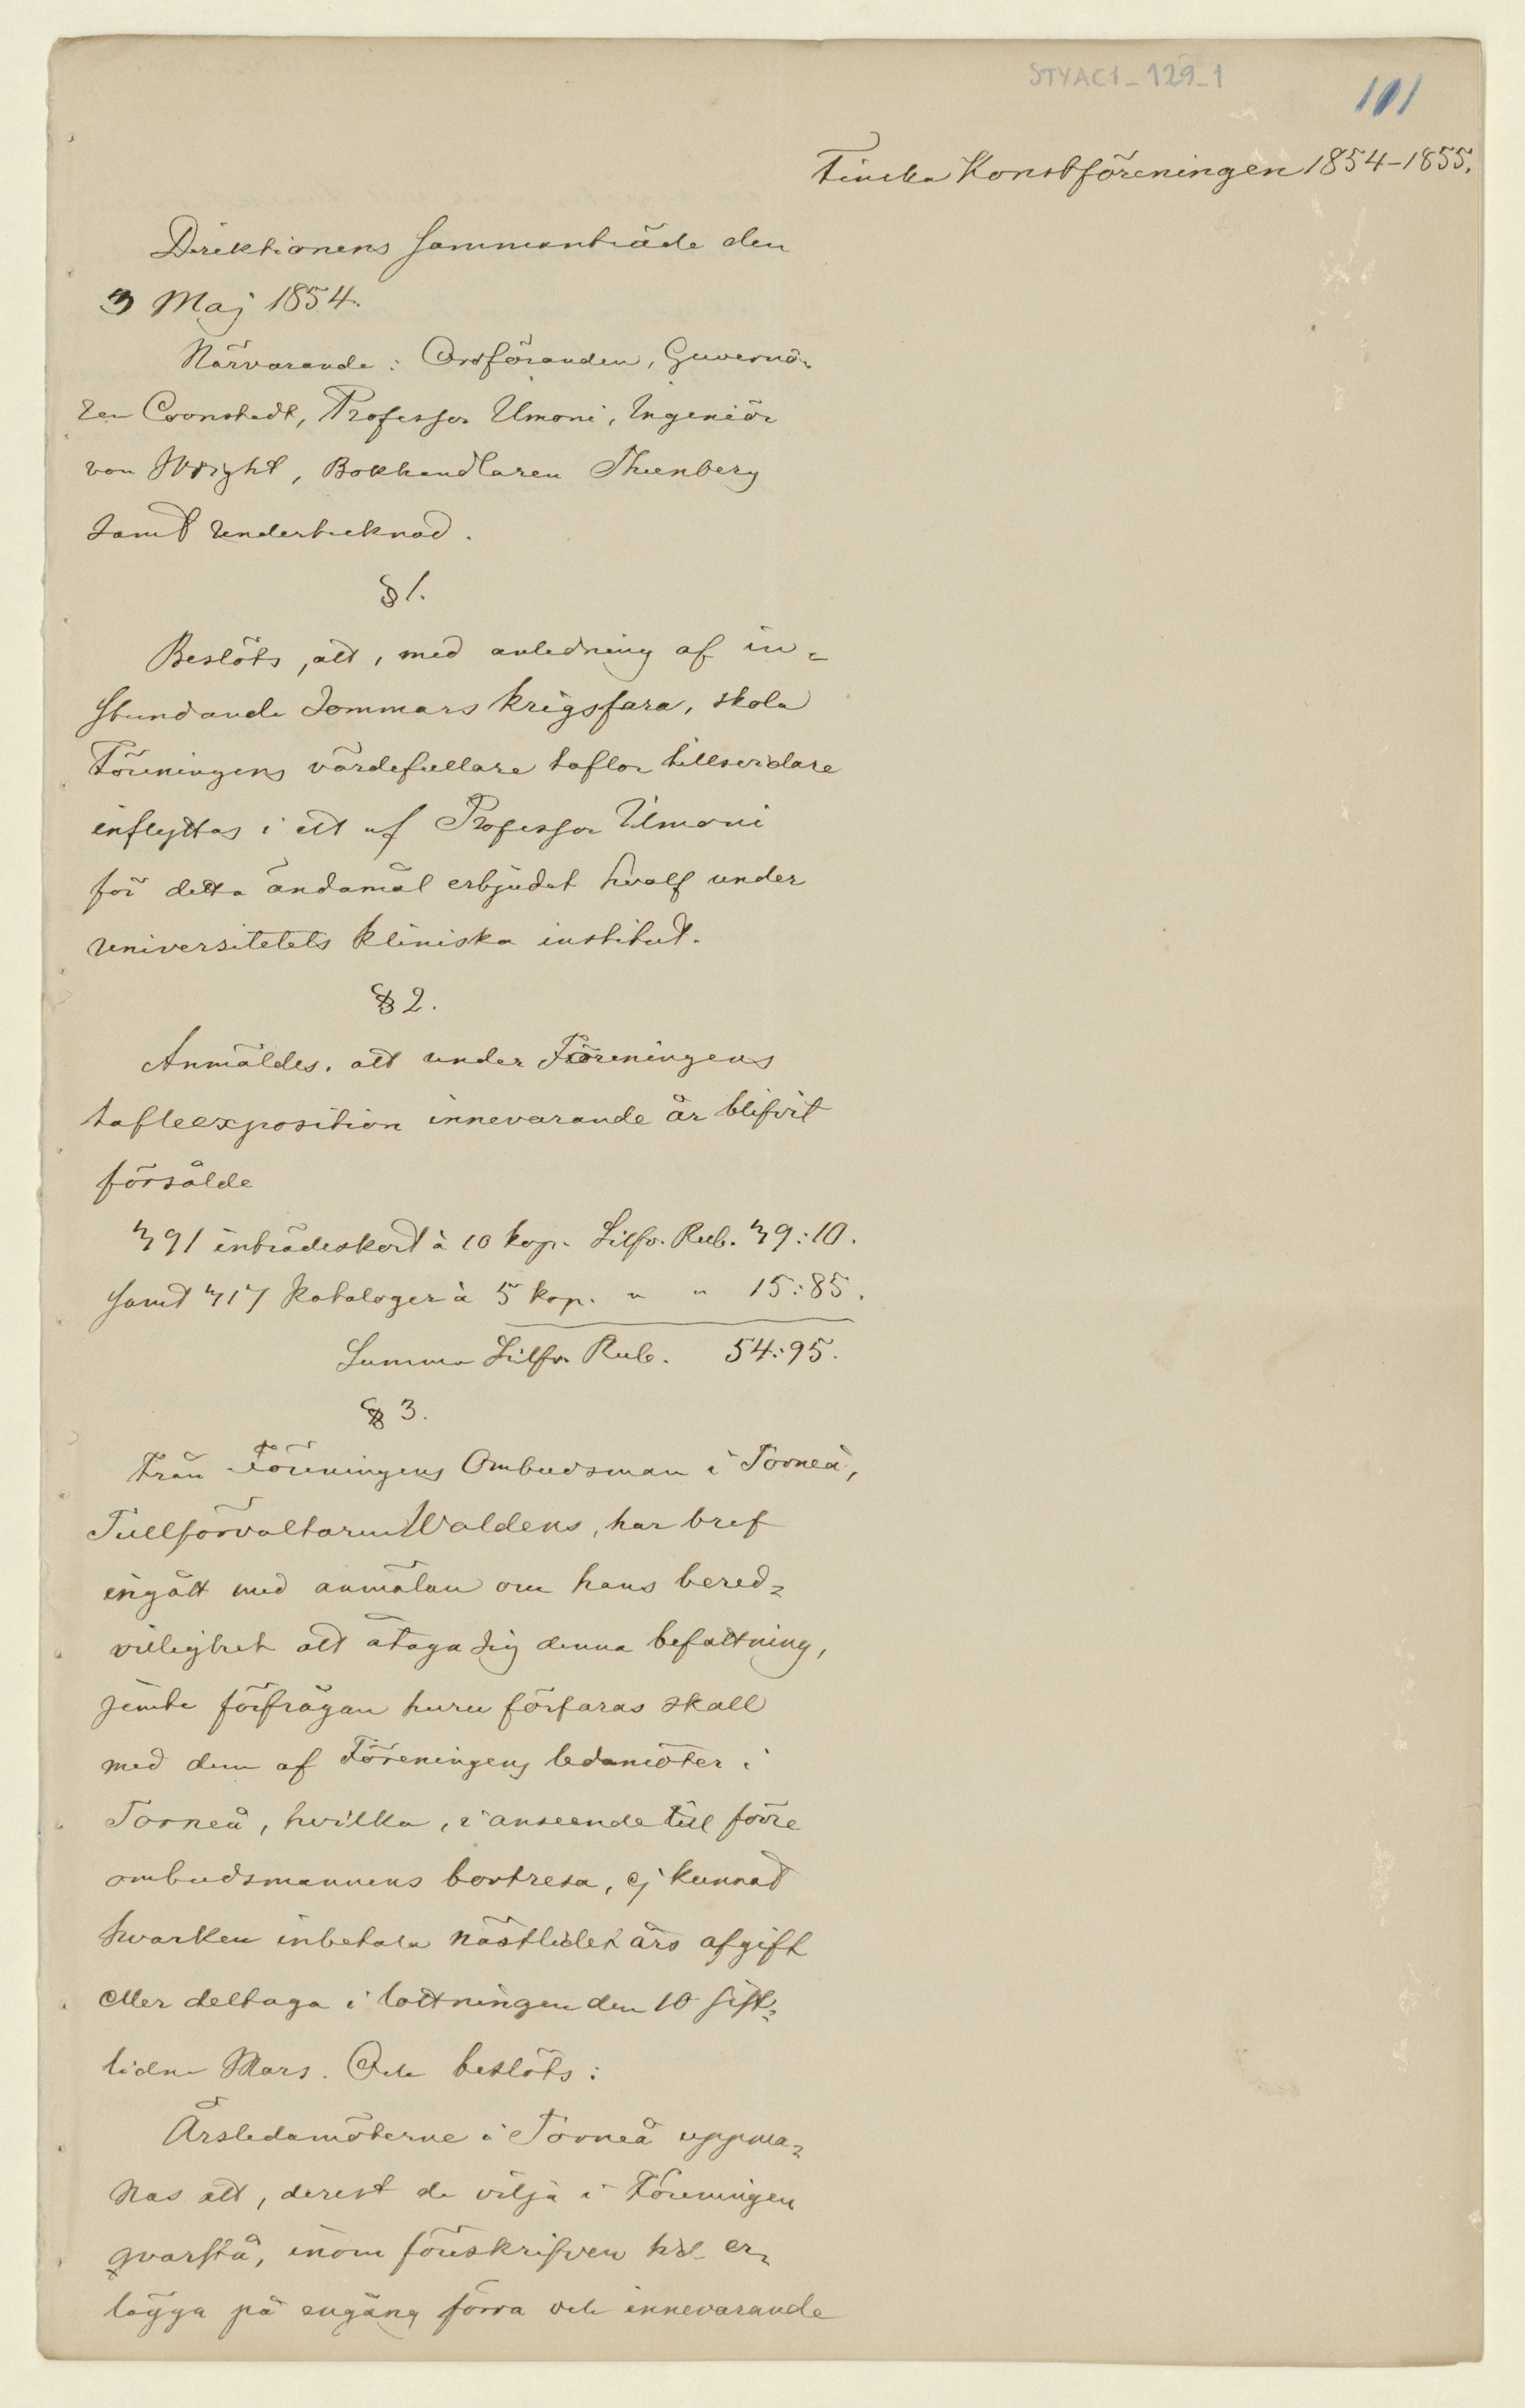 STYAC1_129_1
101
Finska Konstföreningen 1854-1855.
Direktionens sammanträde den
3 Maj 1854.
Närvarande: Ordföranden, Guvernö-
ren Cronstedt, Professor Ilmoni, Ingeniör
von Wright, Bokhandlaren Thunberg
samt undertecknad.
§ 1.
Beslöts, att, med anledning af in-
stundande sommars krigsfara, skola
Föreningens värdefullare taflor tillsvidare
inflyttas i ett af Professor Ilmoni
för detta ändamål erbjudet hvalf under
universitetets kliniska institut.
§ 2.
Anmäldes, att under Föreningens
tafleexposition innevarande år blifvit
försålde
391 inträdeskort à 10 kop. Silfv. Rub. 39:10.
samt 317 kataloger à 5 kop. " " 15:85.
Summa Silfv. Rub. 54:95.
§ 3.
Från Föreningens Ombudsman i Torneå,
Tullförvaltaren Waldens, har bref
ingått med anmälan om hans bered-
villighet att åtaga sig denna befattning,
jemte förfrågan huru förfaras skall
med dem af Föreningens ledamöter i
Torneå, hvilka, i anseende till förre
ombudsmannens bortresa, ej kunnat
hvarken inbetala nästlidet års afgift
eller deltaga i lottningen den 10 sist-
lidne Mars. Och beslöts:
Årsledamöterne i Torneå uppma-
nas att, derest de vilja i Föreningen
qvarstå, inom föreskrifven tid er-
lägga på engång förra och innevarande